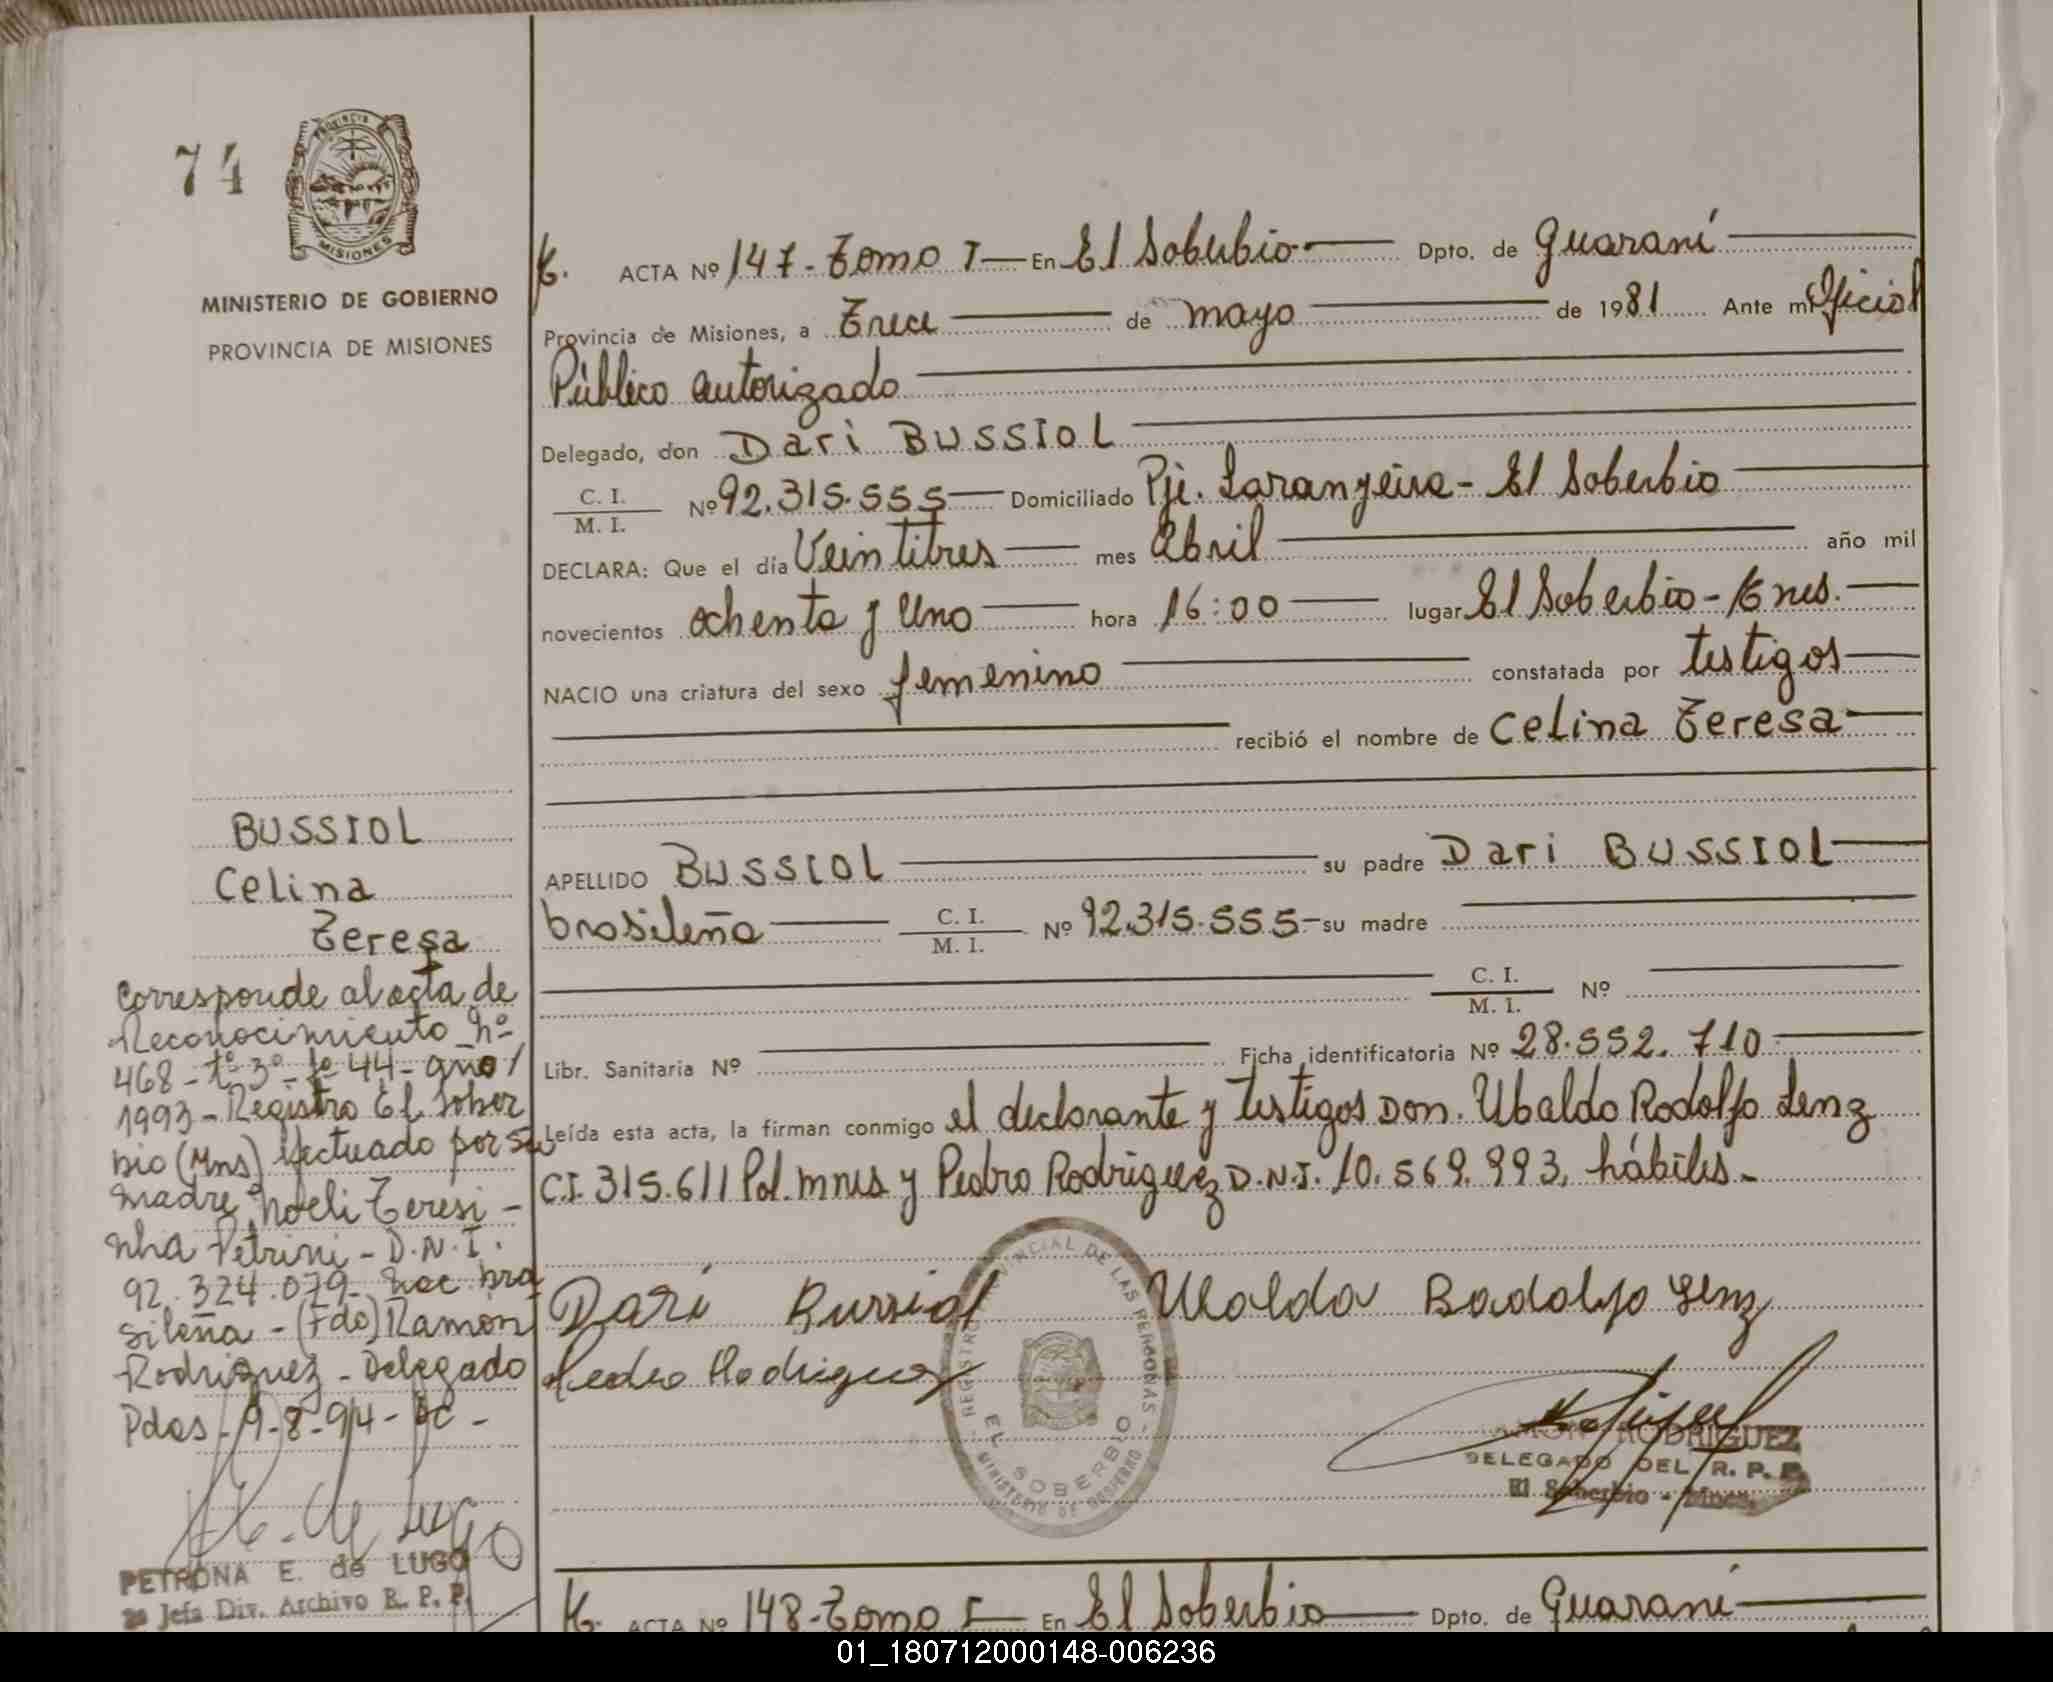 74
PROVINCIA
MISIONES
MINISTERIO DE GOBIERNO
PROVINCIA DE MISIONES
ACTA Nº 147-Tomo I En El Soberbio Dpto. de Guaraní
Provincia de Misiones, a Trece de mayo de 1981 Ante mí Oficial
Público autorizado
Delegado, don Dari BUSSIOL
C. I.
M. I. Nº 92.315.555 Domiciliado Pje. Laranyeira - El Soberbio
DECLARA: Que el día Veintitres mes Abril año mil
novecientos ochenta y Uno hora 16:00 lugar El Soberbio - Mnes.
NACIO una criatura del sexo femenino constatada por testigos
recibió el nombre de Celina Teresa
APELLIDO BUSSIOL su padre Dari BUSSIOL
brasileña C. I.
M. I. Nº 92.315.555- su madre
C. I.
M. I. Nº
Libr. Sanitaria Nº Ficha identificatoria Nº 28.552.710
Leída esta acta, la firman conmigo el declarante y testigos Don. Ubaldo Rodolfo Lenz
C.I. 315.611 Pol. mnes y Pedro Rodriguez D.N.I. 10.569.993, hábiles.-
Dari Bussiol Ubaldo Rodolfo Lenz
Pedro Rodriguez
REGISTRO PROVINCIAL DE LAS PERSONAS
EL SOBERBIO
MINISTERIO DE GOBIERNO
RAMON RODRIGUEZ
DELEGADO DEL R. P. P.
El Soberbio - Mnes.
BUSSIOL
Celina
Teresa
Corresponde al acta de
Reconocimiento nº
468 - tº 3º - fº 44 - año/
1993 - Registro El Sober
bio (Mns) efectuado por su
madre, Noeli Teresi -
nha Petrini - D.N.I.
92.324.079 - nac. bra
sileña - (Fdo) Ramon
Rodriguez - Delegado
Pdas - 9-8-94 -
PETRONA E. de LUGO
Jefa Div. Archivo R. P. P.
ACTA Nº 148-Tomo I En El Soberbio Dpto. de Guaraní
01_180712000148-006236